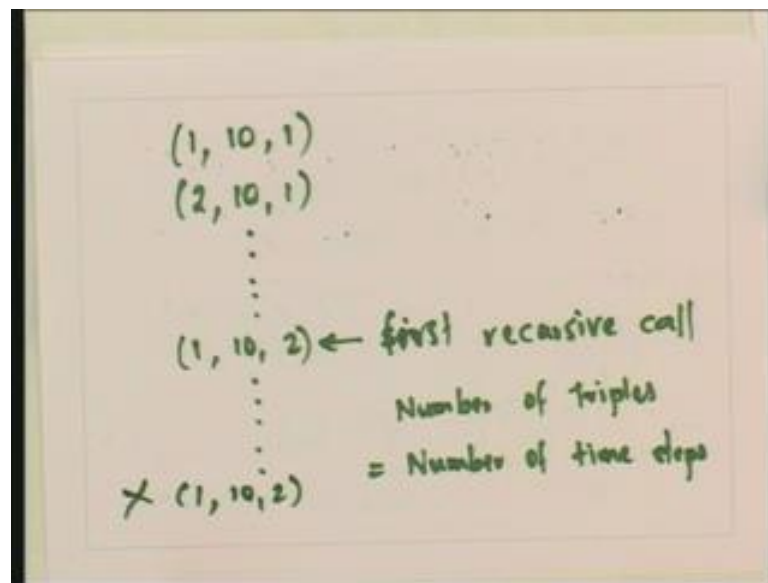 (1, 10, 1)
(2, 10, 1)
(1, 10, 2) ← first recursive call
Number of triples
= Number of time steps
✗ (1, 10, 2)